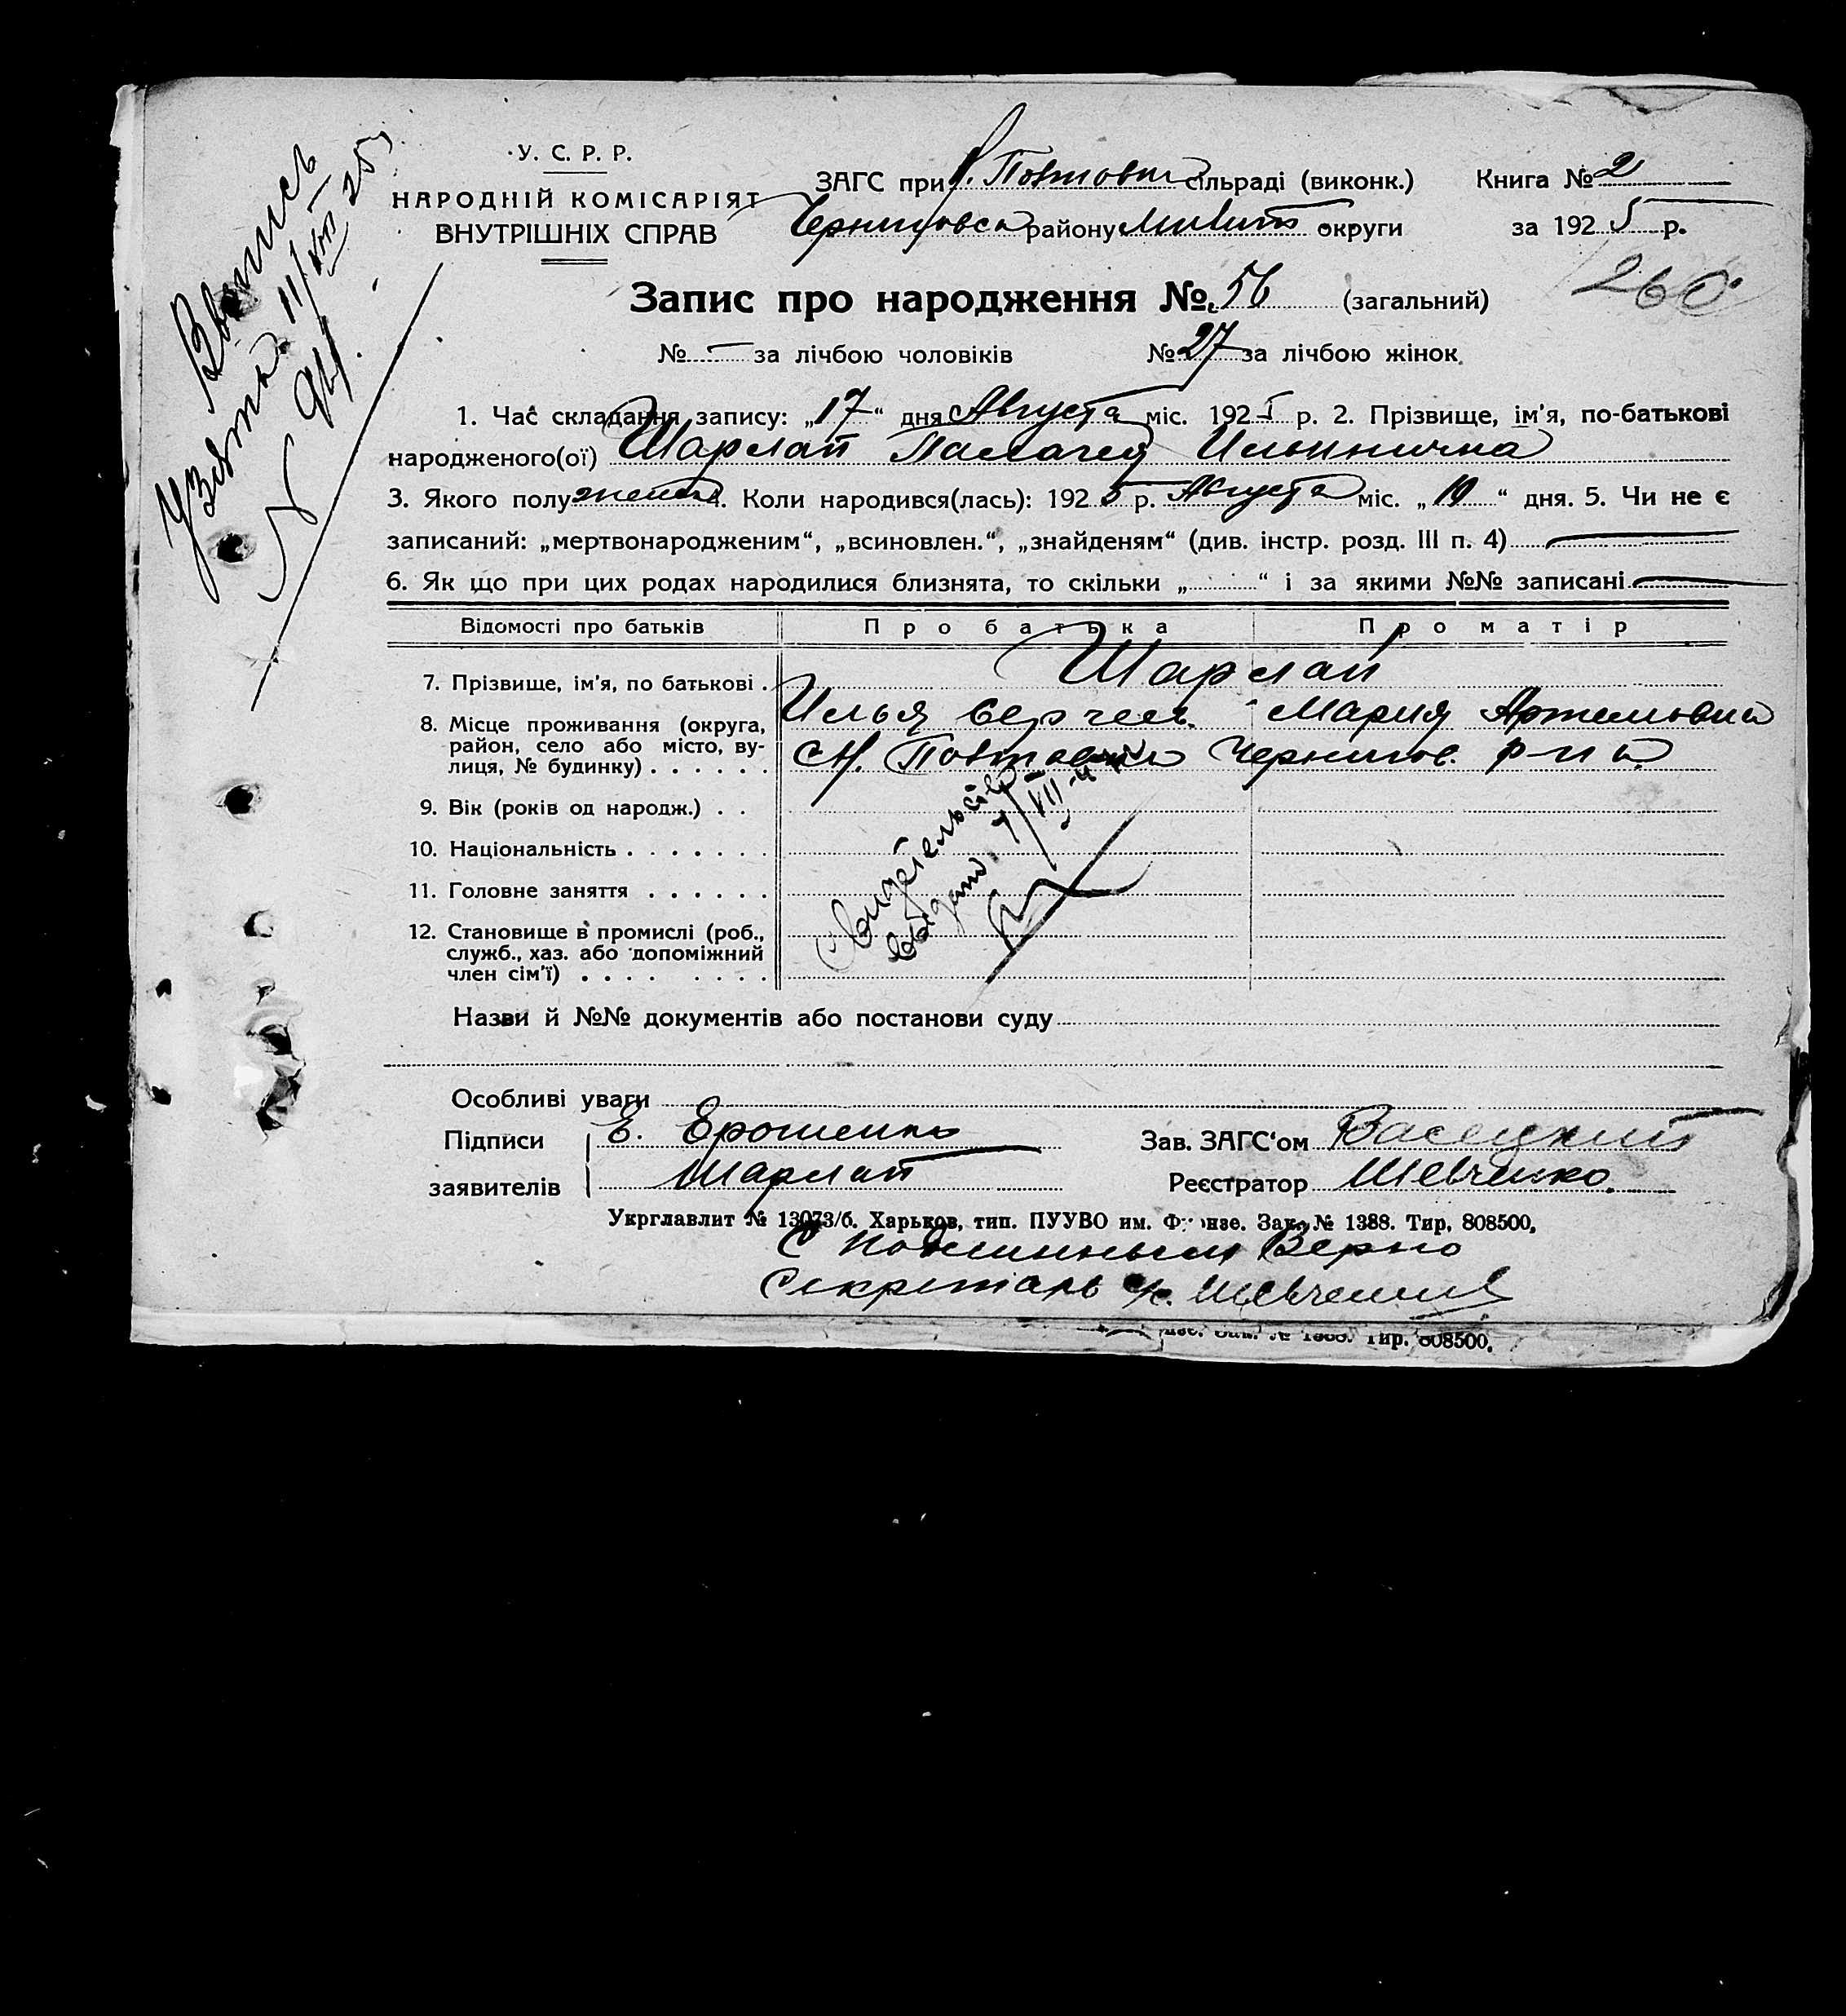 Выпись
Узята 11/VIII 25
У. С. Р. Р.
НАРОДНІЙ КОМІСАРІЯТ
ВНУТРІШНІХ СПРАВ
ЗАГС при сільраді (виконк.) Книга № 2
району округи за 1925 р.
260
Запис про народження № 56 (загальний)
№ - за лічбою чоловіків № 27 за лічбою жінок
1. Час складання запису: „17“ дня Августа міс. 1925 р. 2. Прізвище, ім'я, по-батькові
народженого(ої) Шарлай Палагея Ильинична
3. Якого полу женс. 4. Коли народився(лась): 1925 р. Августа міс. „10“ дня. 5. Чи не є
записаний: „мертвонародженим“, „всиновлен.“, „знайденям“ (див. інстр. розд. III п. 4)
6. Як що при цих родах народилися близнята, то скільки „ “ і за якими №№ записані
Відомості про батьків Про батька Про матір
7. Прізвище, ім'я, по батькові . Шарлай
Илья Сергеев. Мария Артемовна
8. Місце проживання (округа,
район, село або місто, ву-
лиця, № будинку) . . . . . . Чернигов. р-на
9. Вік (років од народж.) . .
10. Національність . . . . . . .
11. Головне заняття . . . . . .
12. Становище в промислі (роб.,
служб., хаз. або допоміжний
член сім'ї) . . . . . . . .
Свидетельство
выдано 7/VII-4
Назви й №№ документів або постанови суду
Особливі уваги
Підписи Е. Ерошенко Зав. ЗАГС'ом Васецкий
заявителів Шарлай Реєстратор Шевченко.
Укрглавлит № 13073/б. Харьков, тип. ПУУВО им. Фрунзе. Зак. № 1388. Тир. 808500.
С подлинным Верно
Секретарь с/с. Шевченко
Тир. 808500.